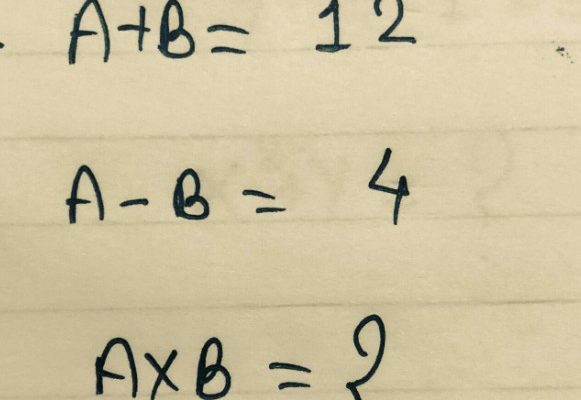 A+B= 12
A-B = 4
AXB = ?